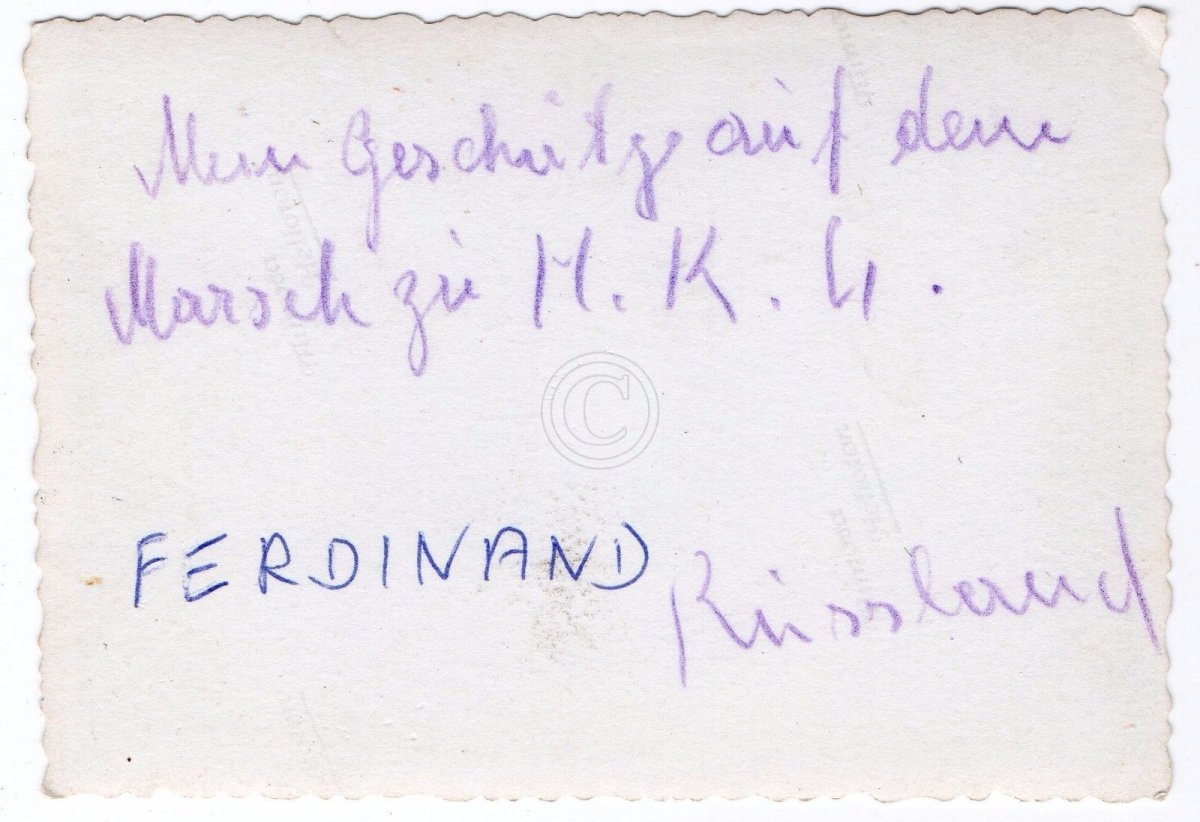 Mein Geschütz auf dem
Marsch zu H. K. L.
FERDINAND
Russland
©